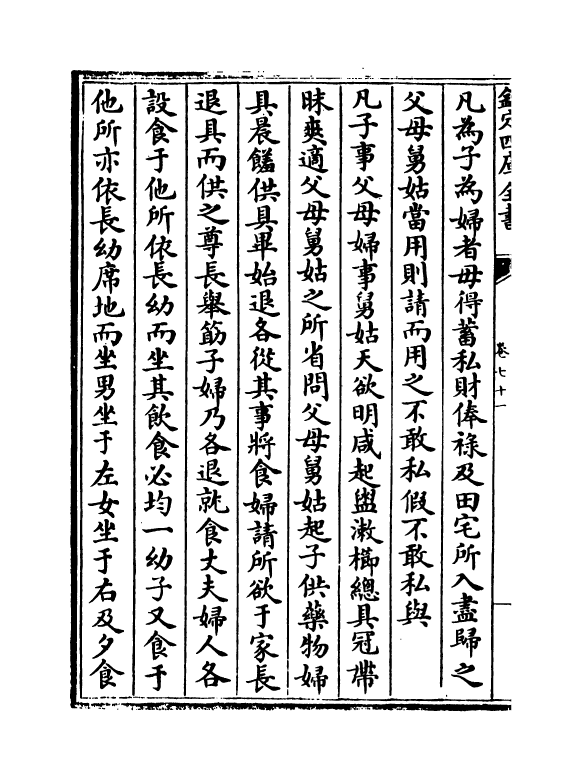 欽定四庫全書
卷七十一
凡為子為婦者毋得蓄私財俸祿及田宅所入盡歸之
父母舅姑當用則請而用之不敢私假不敢私與
凡子事父母婦事舅姑天欲明咸起盥漱櫛總具冠帶
昧爽適父母舅姑之所省問父母舅姑起子供藥物婦
具晨饈供具畢始退各從其事將食婦請所欲于家長
退具而供之尊長舉筯子婦乃各退就食丈夫婦人各
設食于他所依長幼而坐其飲食必均一幼子又食于
他所亦依長幼席地而坐男坐于左女坐于右及夕食